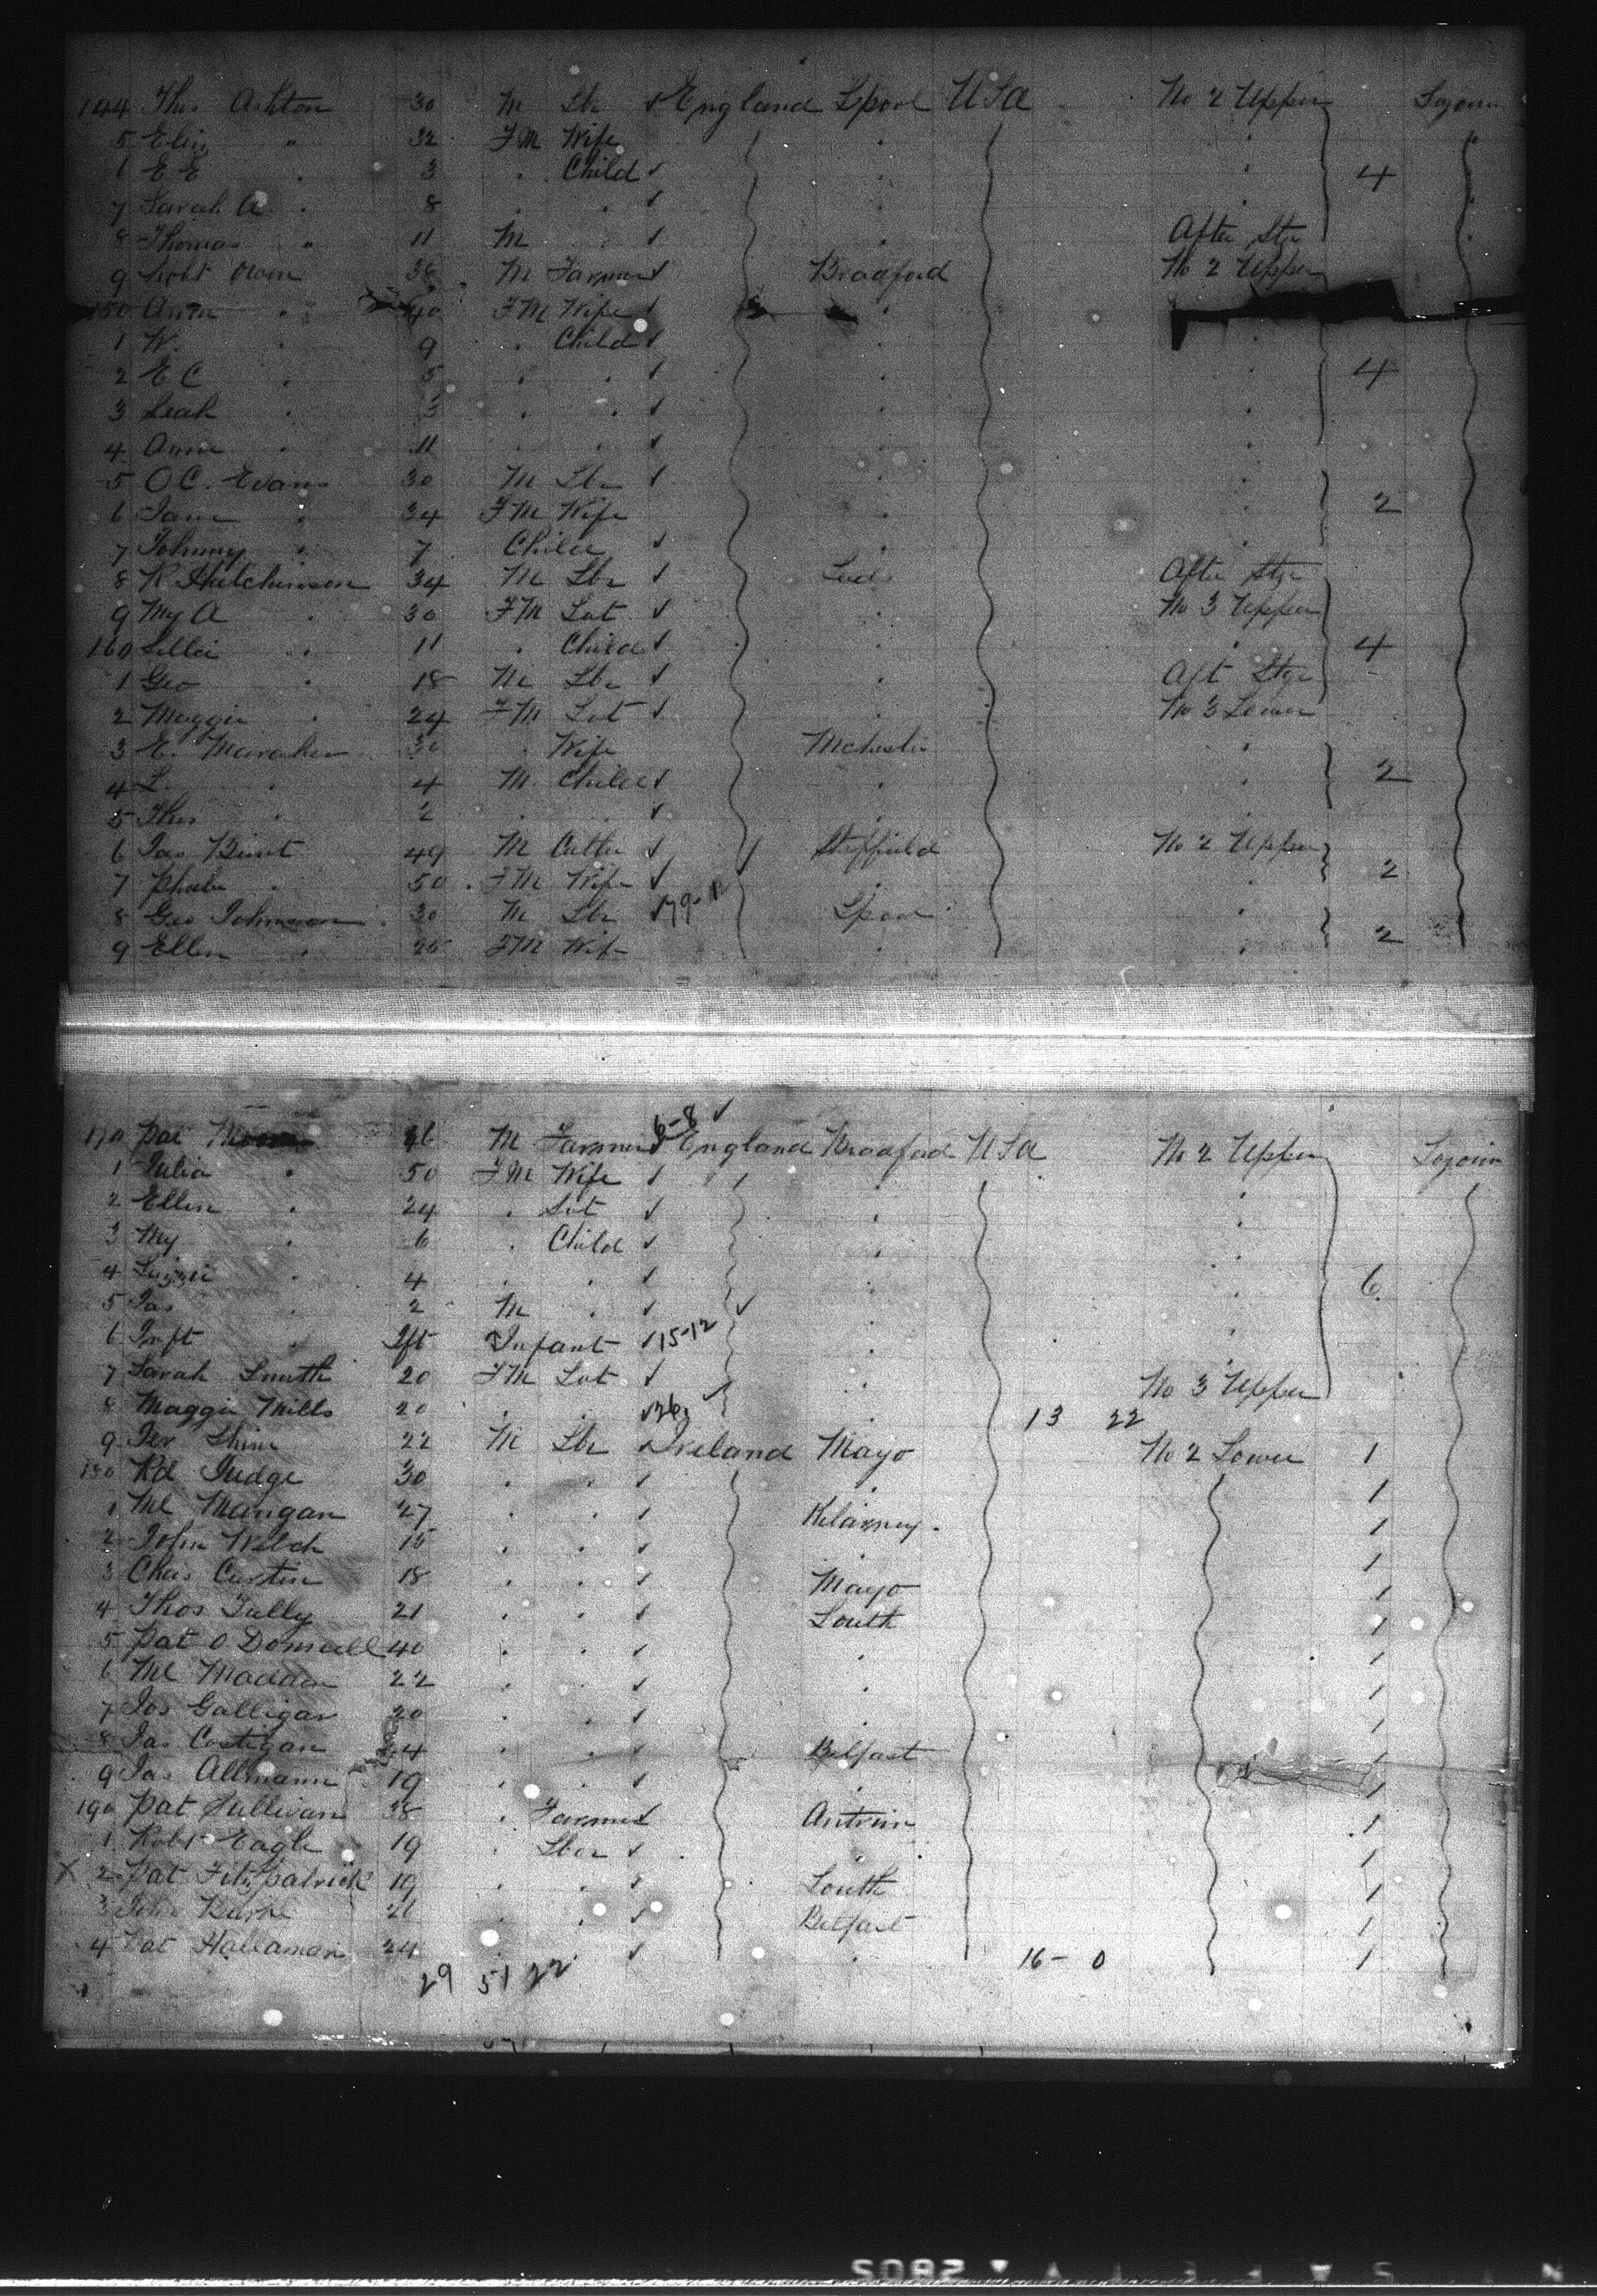 144 Thos Ashton 30 M Lbr ✓ England Lpool USA No 2 Upper Sojourn
5 Eliz " 32 FM Wife
6 E E . 3 . Child ✓ 4
7 Sarah A . 8 . . ✓
8 Thomas " 11 M . ✓ After Stge
9 Robt Owen 38 M Farmer ✓ Bradford No 2 Upper
150 Anna . 40 FM Wife ✓
1 W. . 9 . Child ✓
2 E C . 5 . . ✓ 4
3 Leah . . . ✓
4 Anne . 11 . . ✓
5 O C. Evans 30 M Lbr ✓
6 Jane . 34 FM Wife 2
7 Johnny . 7 Child ✓
8 R Hutchinson 34 M Lbr ✓ Leeds After Stge
9 My A . 30 FM Sst ✓ No 3 Upper
160 . 11 . Child ✓ 4
1 Geo . 18 M Lbr ✓ Aft Stge
2 Maggie . 24 FM Sst ✓ No 3 Lower
3 E. 30 . Wife Mchester
4 L. . 4 M Child ✓ 2
5 Thos . 2 . . ✓
6 Jas 49 M Cutler ✓ Sheffield No 2 Upper
7 Phoebe . 50 FM Wife ✓ 2
8 Geo Johnson 30 M Lbr ✓ 79-12 Lpool
9 Ellen . 25 FM Wife 2
6-8 ✓
170 Pat M Farmer ✓ England Bradford USA No 2 Upper Sojourn
1 Julia " 50 FM Wife ✓
2 Ellen . 24 . Sst ✓
3 My . 6 . Child ✓
4 Lizzie . 4 . . ✓ 6
5 Jas . 2 M . ✓ ✓
6 Inft . Ift Infant ✓ 15-12
7 Sarah Smith 20 FM Sst ✓ No 3 Upper
8 Maggie Mills 20 . . ✓ 13 22
9 Jer Shine 22 M Lbr ✓ Ireland Mayo No 2 Lower 1
180 Rd Judge 30 . . ✓ . 1
1 Ml Mangan 27 . . ✓ Kilarney. 1
2 John Welch 15 . . ✓ . 1
3 Chas Curtin 18 . . ✓ Mayo 1
4 Thos Tully 21 . . ✓ Louth 1
5 Pat O Donnell 40 . . ✓ . 1
6 Ml Madden 22 . . ✓ . 1
7 Jos Galligan 20 . . ✓ . 1
8 Jas Costigan 24 . . ✓ Belfast 1
9 Jas Allmann 19 . . ✓ . 1
190 Pat Sullivan 38 . Farmer ✓ Antrim 1
1 Robt Eagle 19 . Lbor ✓ . 1
X 2 Pat Fitzpatrick 19 . . ✓ Louth 1
3 John Burke 21 . . ✓ Belfast 1
4 Pat 24 . . ✓ . 16- 0 1
29 51 22